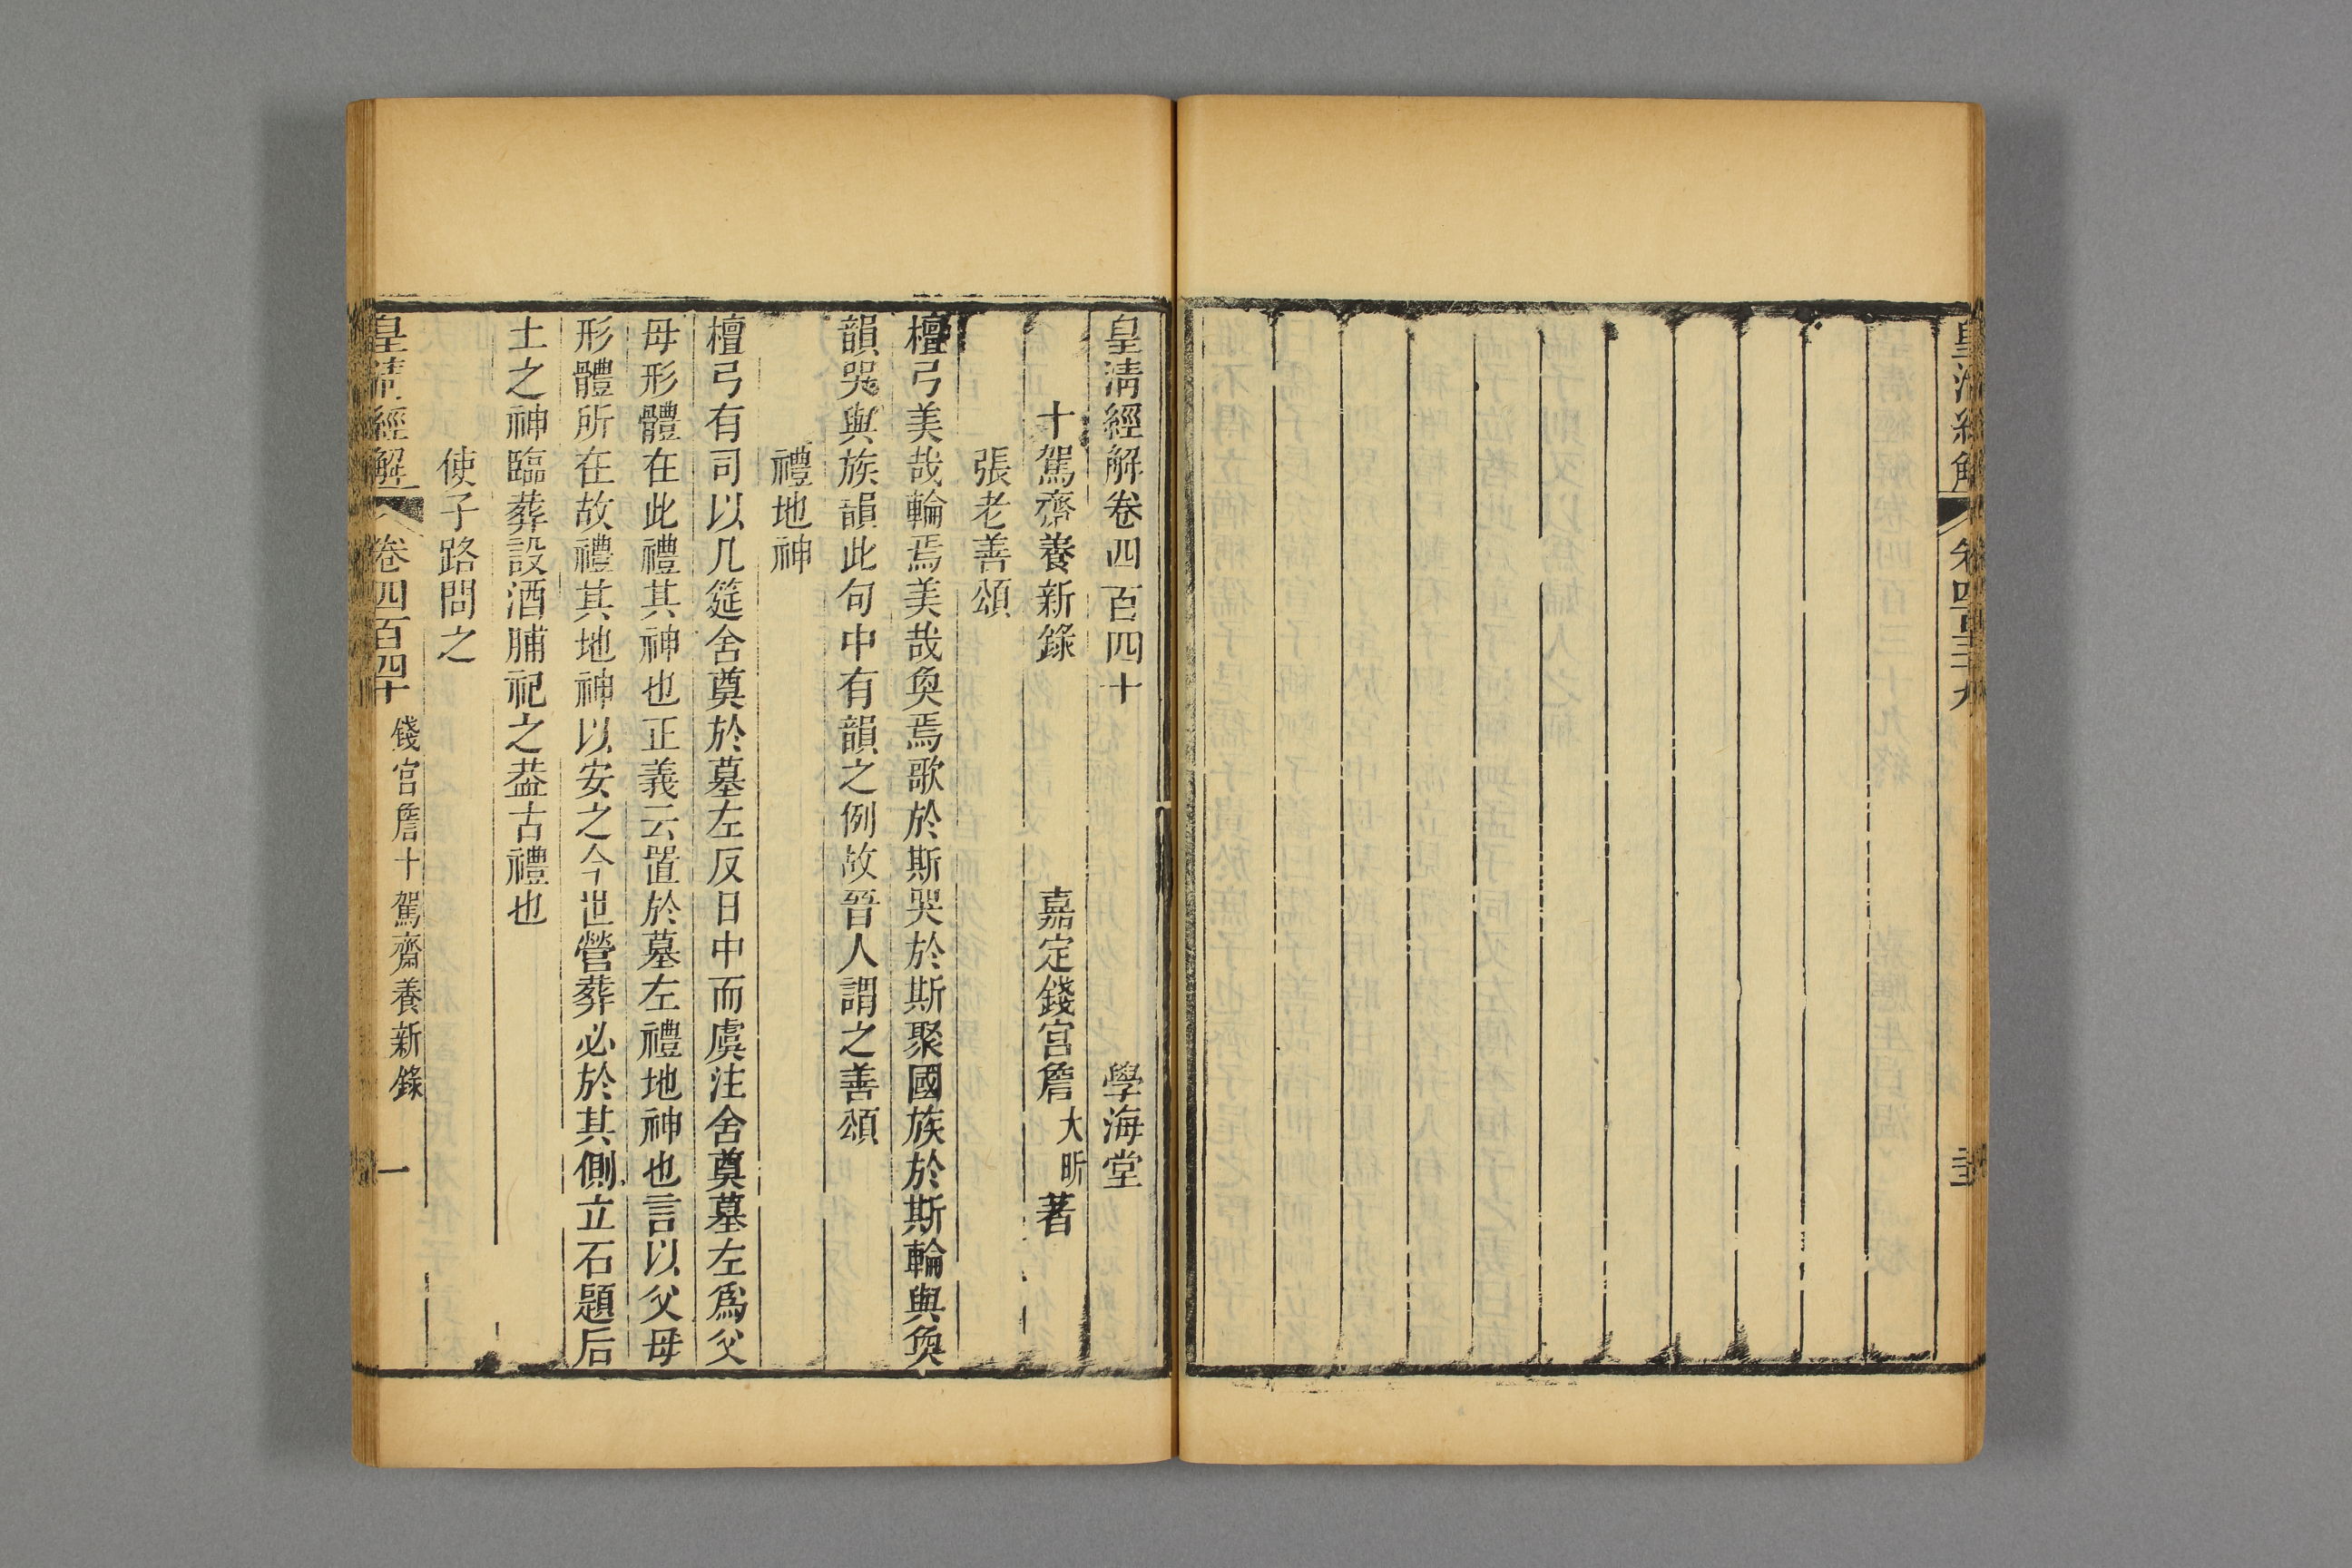 皇清經解卷四百四十 學海堂
十駕齋養新錄 嘉定錢宮詹大昕著
張老善頌
檀弓美哉輪焉美哉奐焉歌於斯哭於斯聚國族於斯輪與奐
韻哭與族韻此句中有韻之例故晉人謂之善頌
禮地神
檀弓有司以几筵舍奠於墓左反日中而虞注舍奠墓左爲父
母形體在此禮其神也正義云置於墓左禮地神也言以父母
形體所在故禮其地神以安之今世營葬必於其側立石題后
土之神臨葬設酒脯祀之葢古禮也
使子路問之
皇清經解 卷四百四十 錢宮詹十駕齋養新錄 一